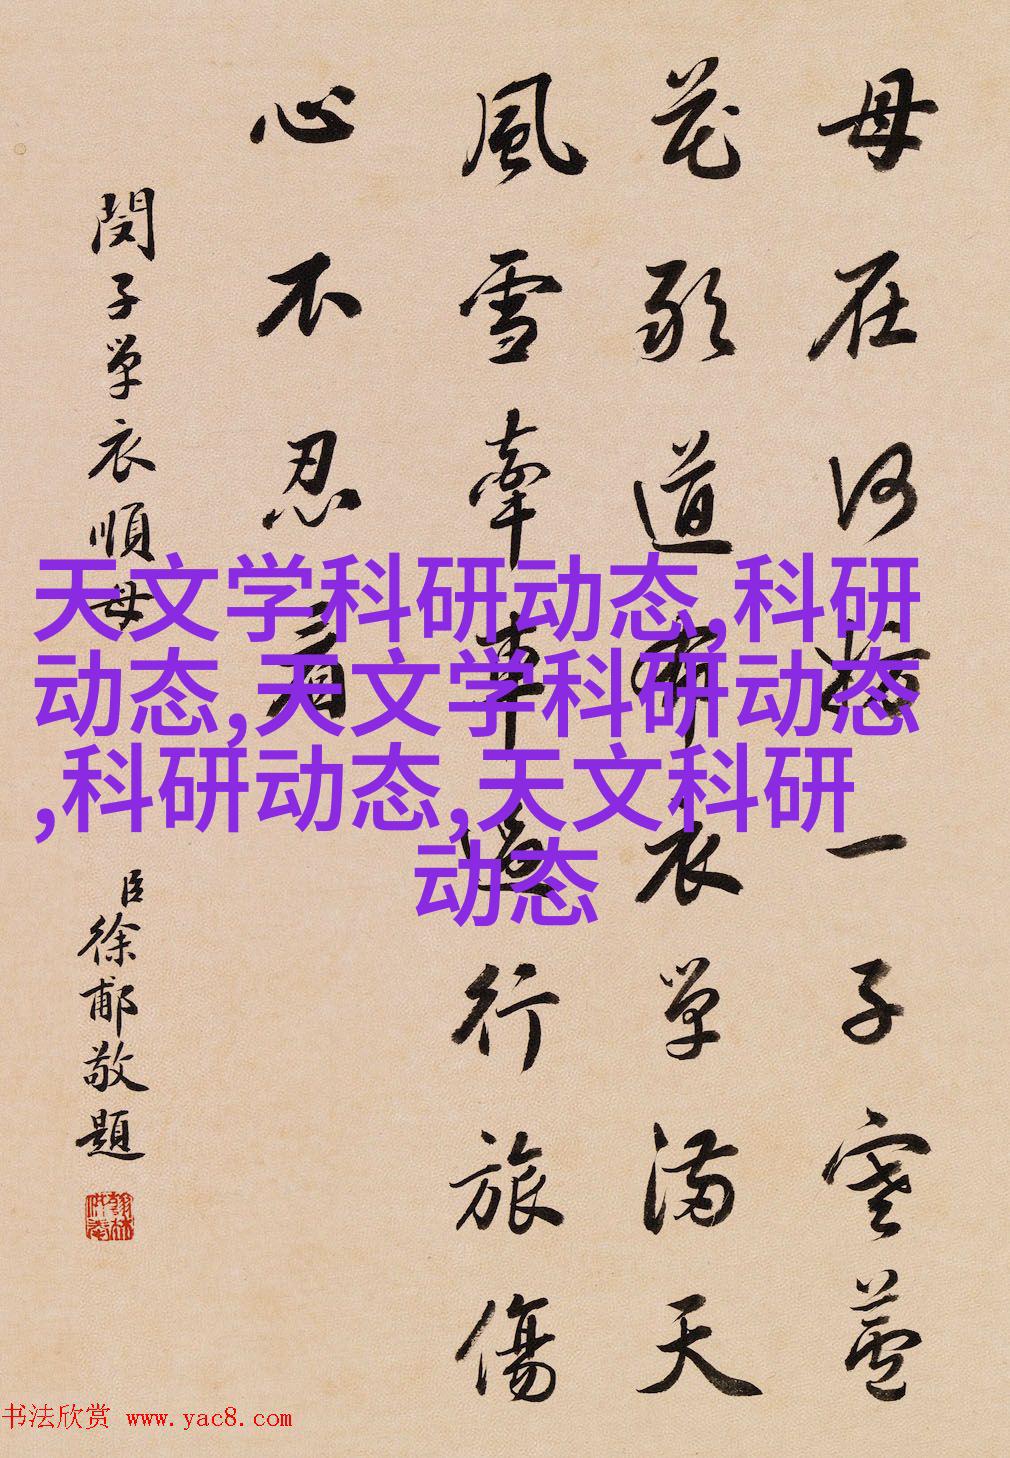 母在何一子寒蘆
花敢道布衣單滿天
風雪牽車行旅傷
心不忍看
閔子單衣順母
臣徐郙敬題
天文学科研动态,科研
动态,天文学科研动态
,科研动态,天文科研
动态
书法欣赏 www.yac8.com